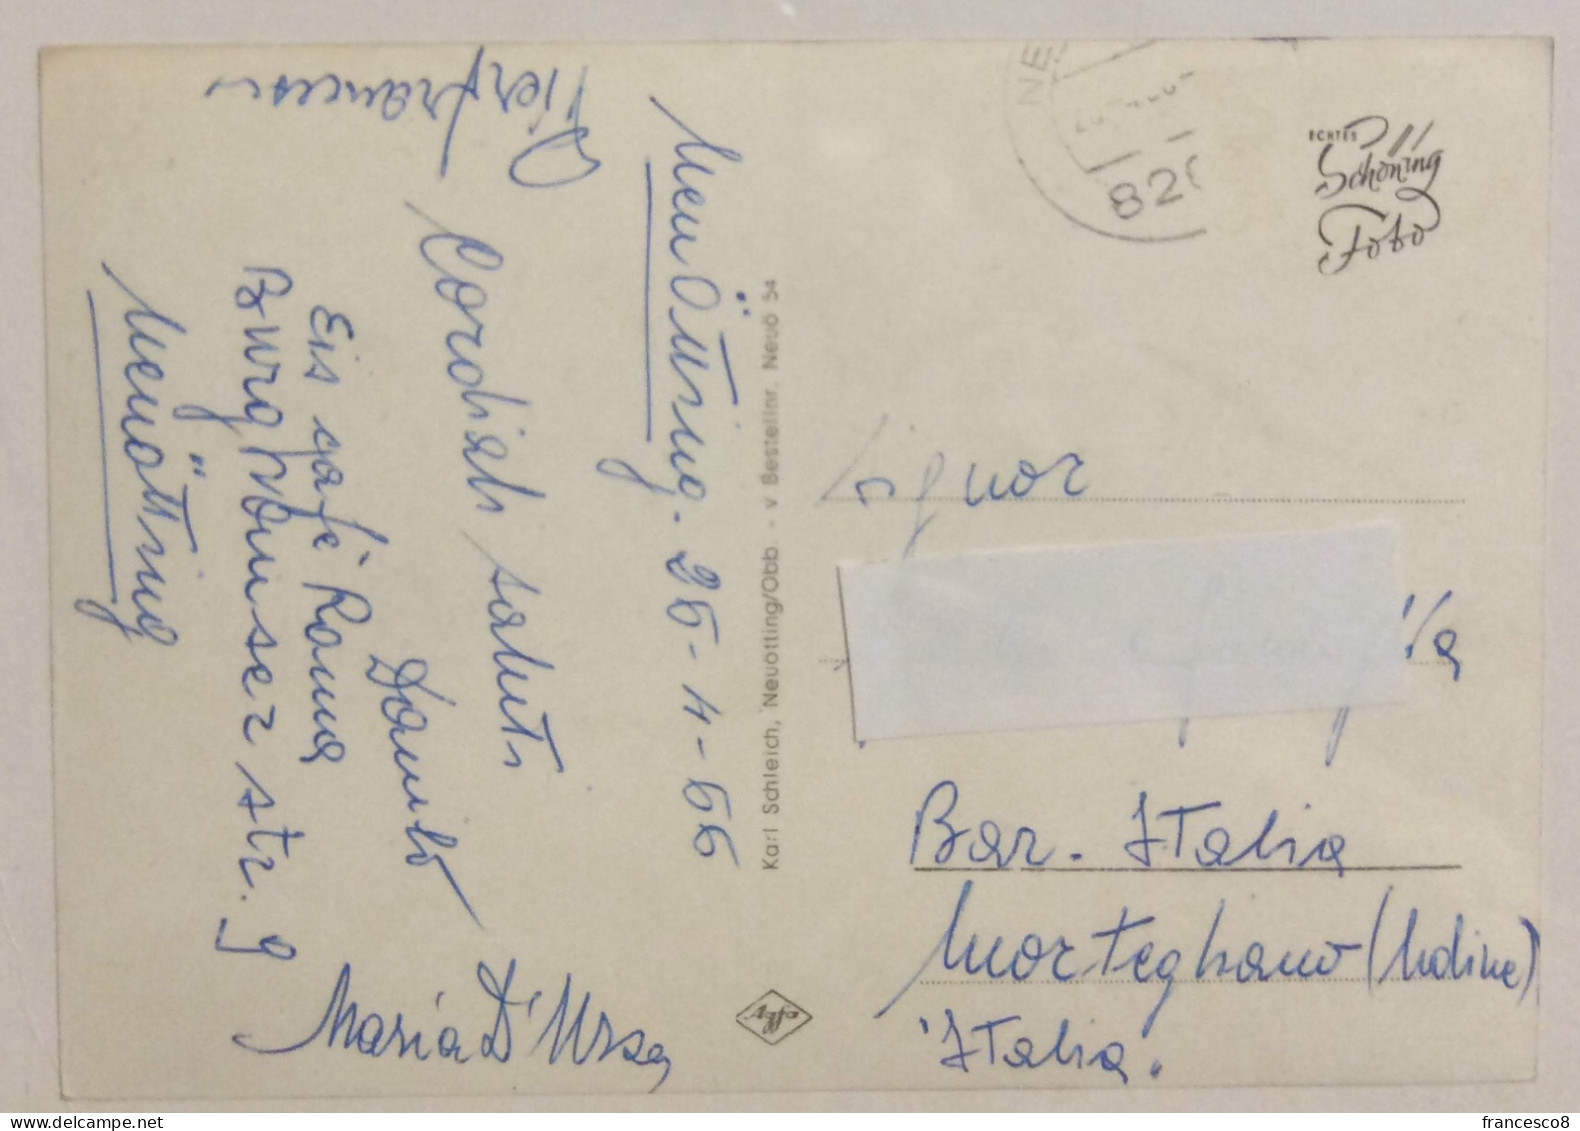 NeuÖtting. 25-4-66
Cordiali saluti
Danilo
Eis cafè Roma
Burghauser str. 9
Neuötting
Pierfrancesco
Maria D'Ursa
Karl Schleich, Neuötting/Obb. - v Bestellnr. Neuö 54
Agfa
NE
820
ECHTES
Schöning
Foto
Signor
Bar. Italia
Mortegliano (Udine)
Italia.
francesco8